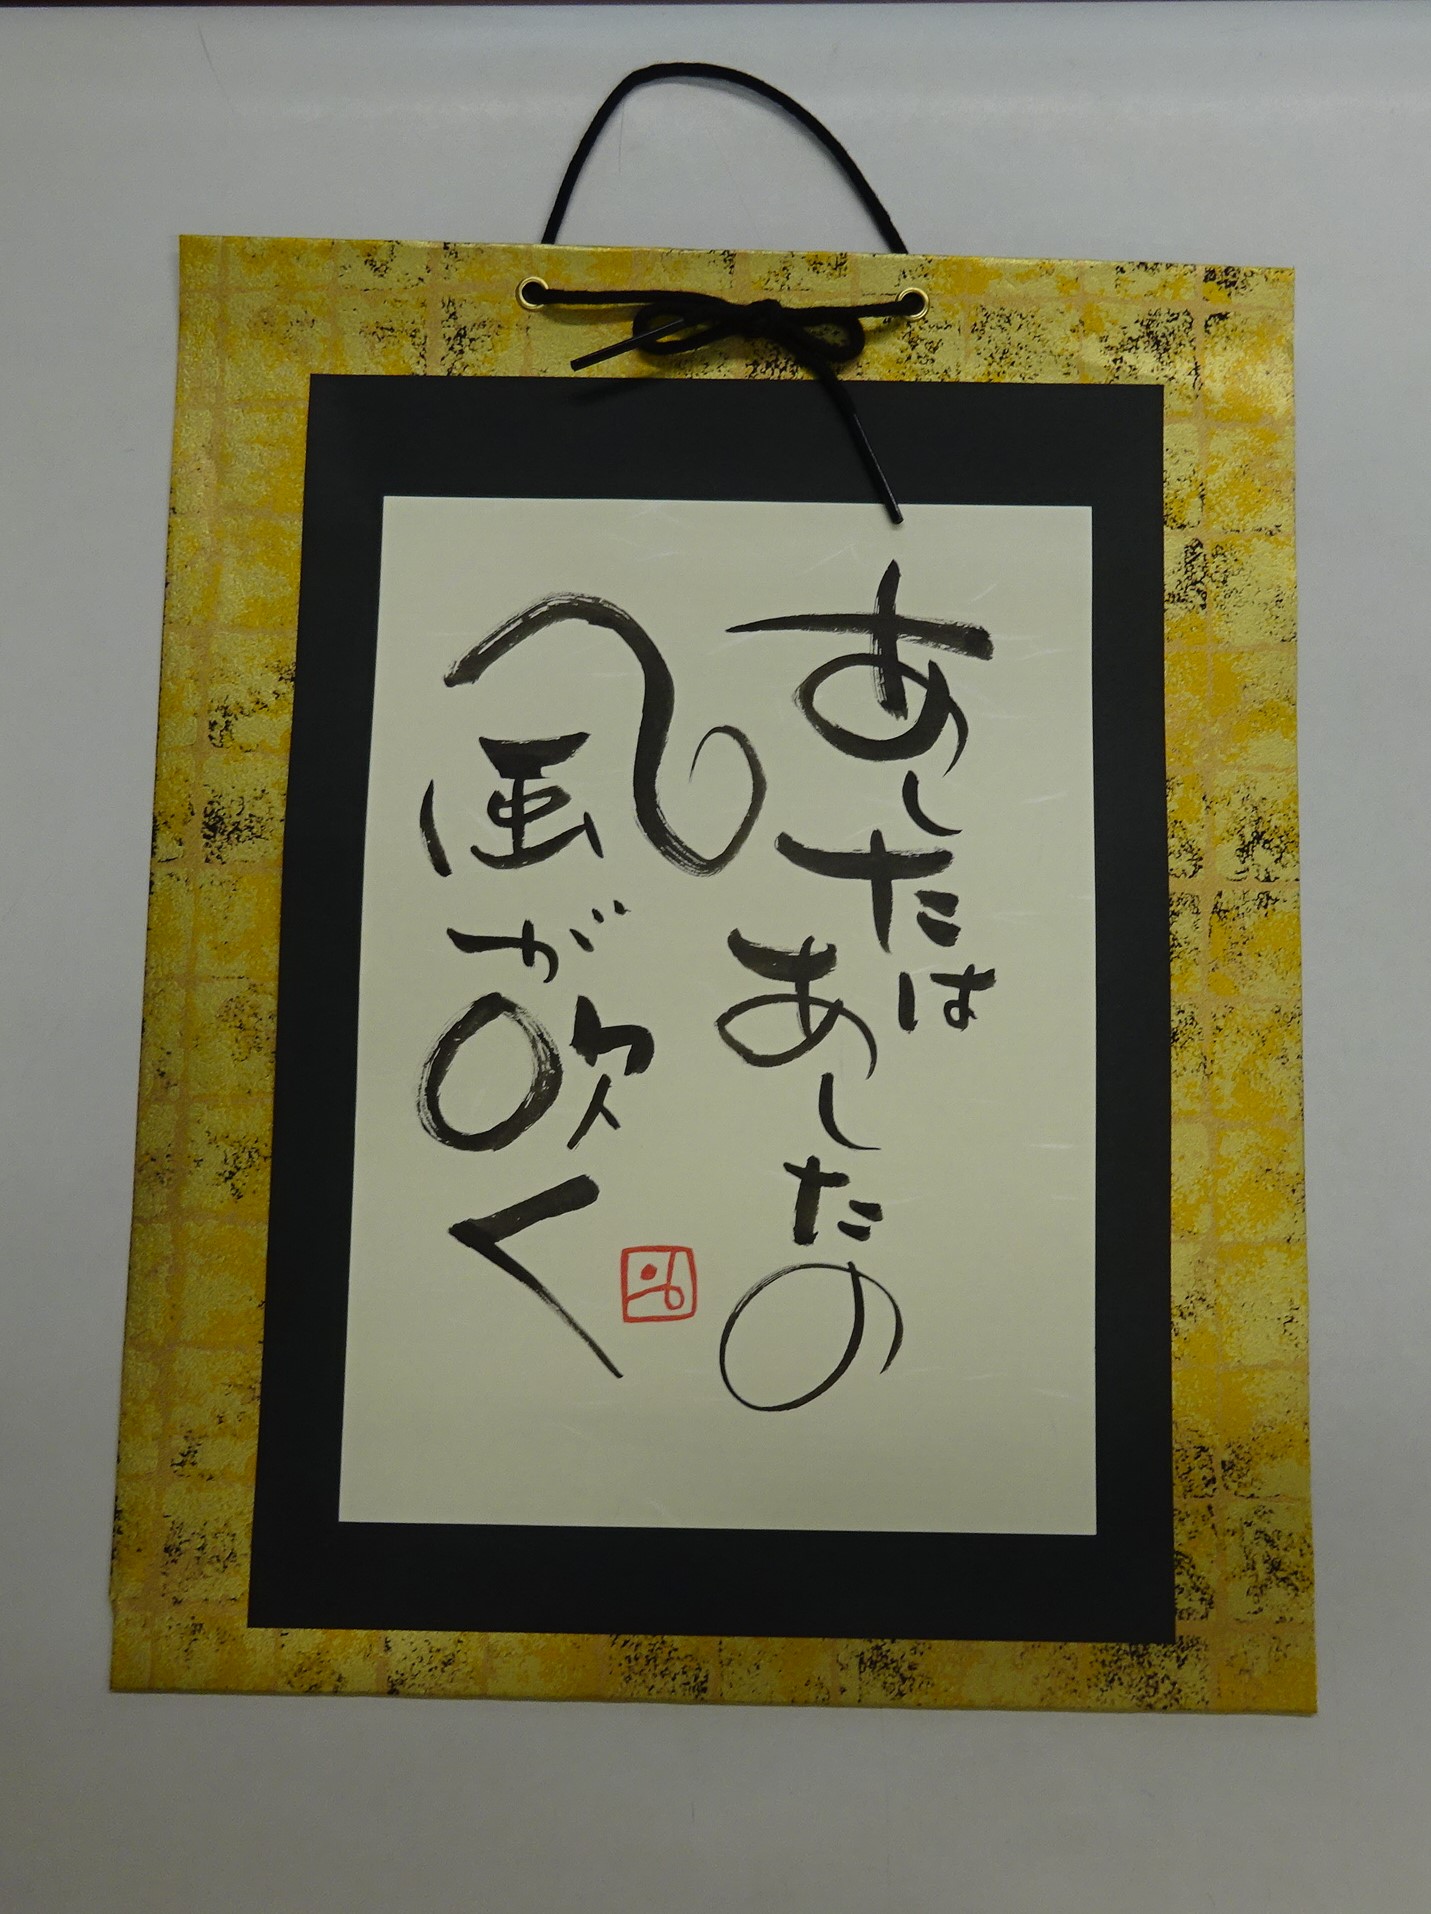 あしたはあしたの
風が吹く